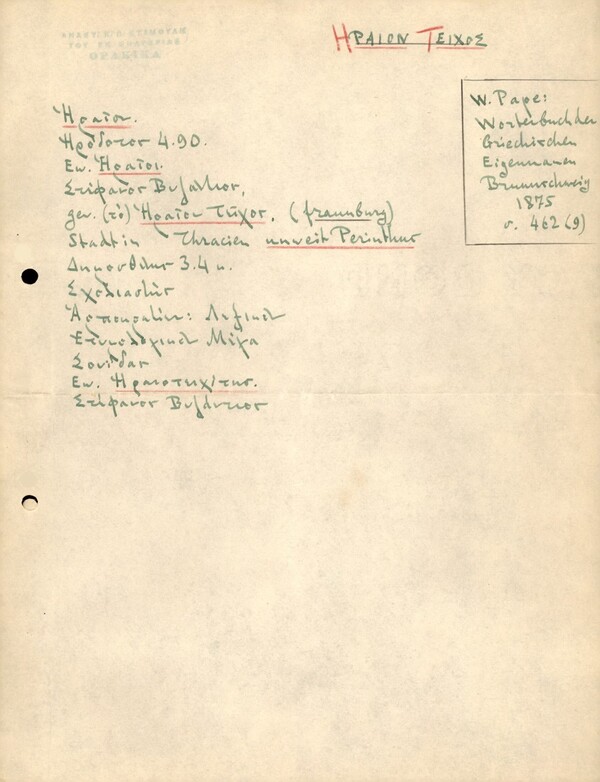 ΗΡΑΙΟΝ ΤΕΙΧΟΣ
W. Pape:
Wörterbuch der
Griechischen
Eigennamen
Braunschweig
1875
σ. 462 (9)
Ἡραῖον.
Ἡρόδοτος 4.90.
Εω. Ἡραῖοι.
Στέφανος Βυζάντιος,
gew. (τὸ) Ἡραῖον Τεῖχος, (fraunburg)
Stadt in Thracien unweit Perinthus
Δημοσθένης 3.4 u.
Σχολιαστὴς
Ἁρποκρατίων: Λεξικὸν
Ἐτυμολογικὸν Μέγα
Σουίδας
Εω. Ἡραιοτειχίτης.
Στέφανος Βυζάντιος